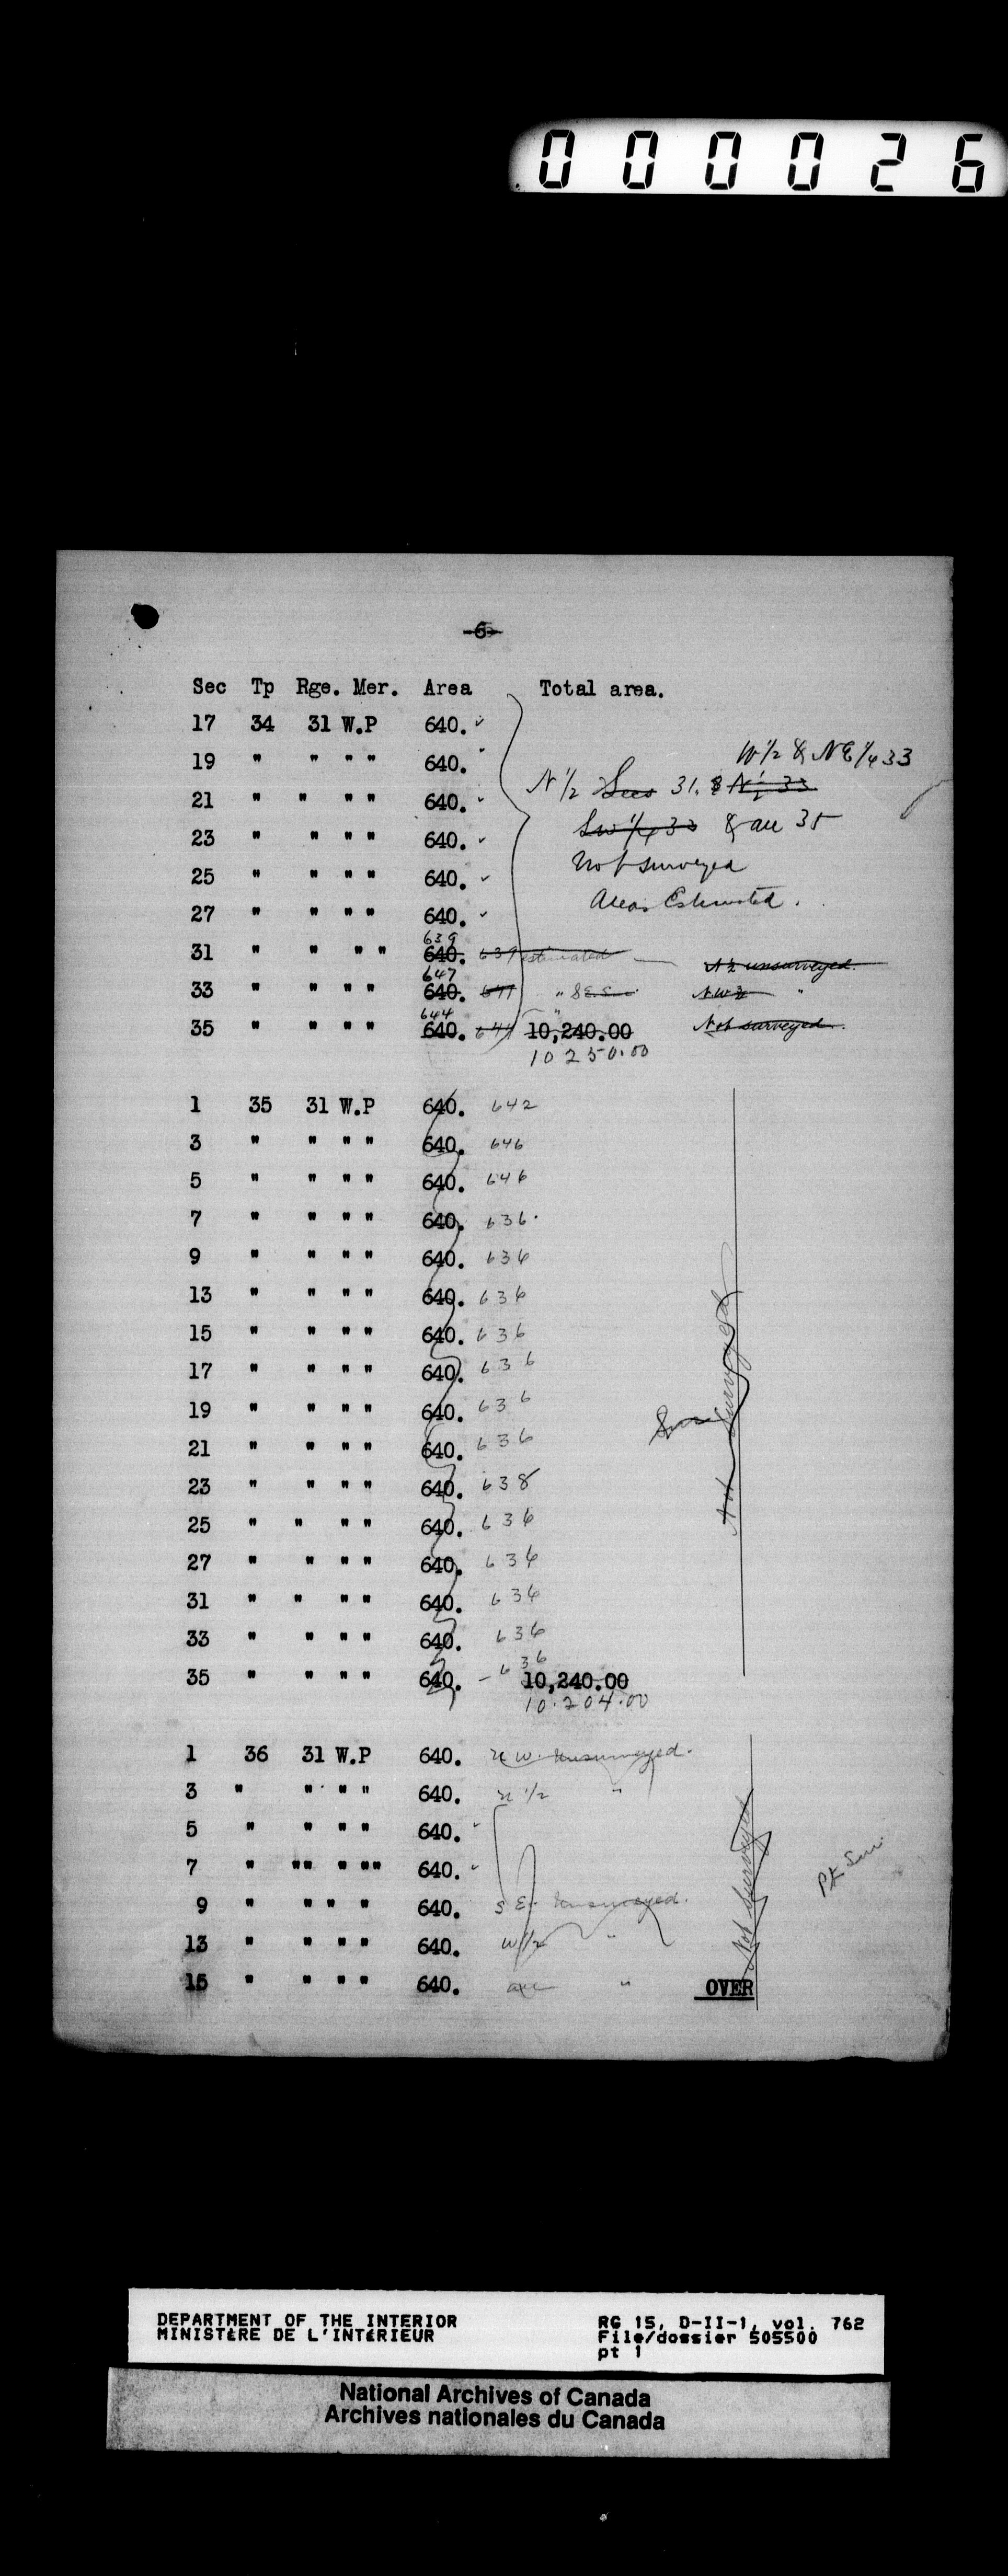 000026
-6-
Sec Tp Rge. Mer. Area Total area.
17 34 31 W.P 640.
19 " " " " 640. W 1/2 & NE 1/4 33
21 " " " " 640. N 1/2 Secs 31. & N 1/2 33
23 " " " " 640. SW 1/4 33 & all 35
25 " " " " 640. Not surveyed
27 " " " " 640. Areas Estimated.
639
31 " " " " 640. 639 estimated N 1/2 unsurveyed.
647
33 " " " " 640. 647 " NW 1/4 "
644
35 " " " " 640. 644 10,240.00 Not surveyed.
10250.00
1 35 31 W.P 640. 642
3 " " " " 640. 646
5 " " " " 640. 646
7 " " " " 640. 636.
9 " " " " 640. 636
13 " " " " 640. 636
15 " " " " 640. 636
17 " " " " 640. 636
19 " " " " 640. 636
21 " " " " 640. 636
23 " " " " 640. 638
25 " " " " 640. 636
27 " " " " 640. 636
31 " " " " 640. 636
33 " " " " 640. 636
35 " " " " 640. - 636 10,240.00
10.204.00
Not Surveyed
1 36 31 W.P 640. N W. Unsurveyed.
3 " " " " 640. N 1/2 "
5 " " " " 640.
7 " "" " "" 640.
9 " " " " 640. S E. Unsurveyed.
13 " " " " 640. W 1/2 "
15 " " " " 640. all " OVER
Not Surveyed
Pt Sur
DEPARTMENT OF THE INTERIOR
MINISTÈRE DE L'INTÉRIEUR
RG 15, D-II-1, vol. 762
File/dossier 505500
pt 1
National Archives of Canada
Archives nationales du Canada